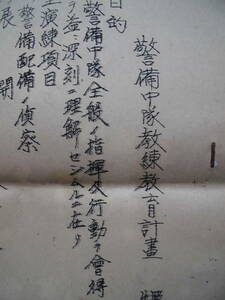 警備中隊教練教育計畫
目的
警備中隊全般ノ指揮及行動ヲ會得
益〻深刻ニ理解セシムルニ在リ
主演練項目
警備配備ノ偵察
開